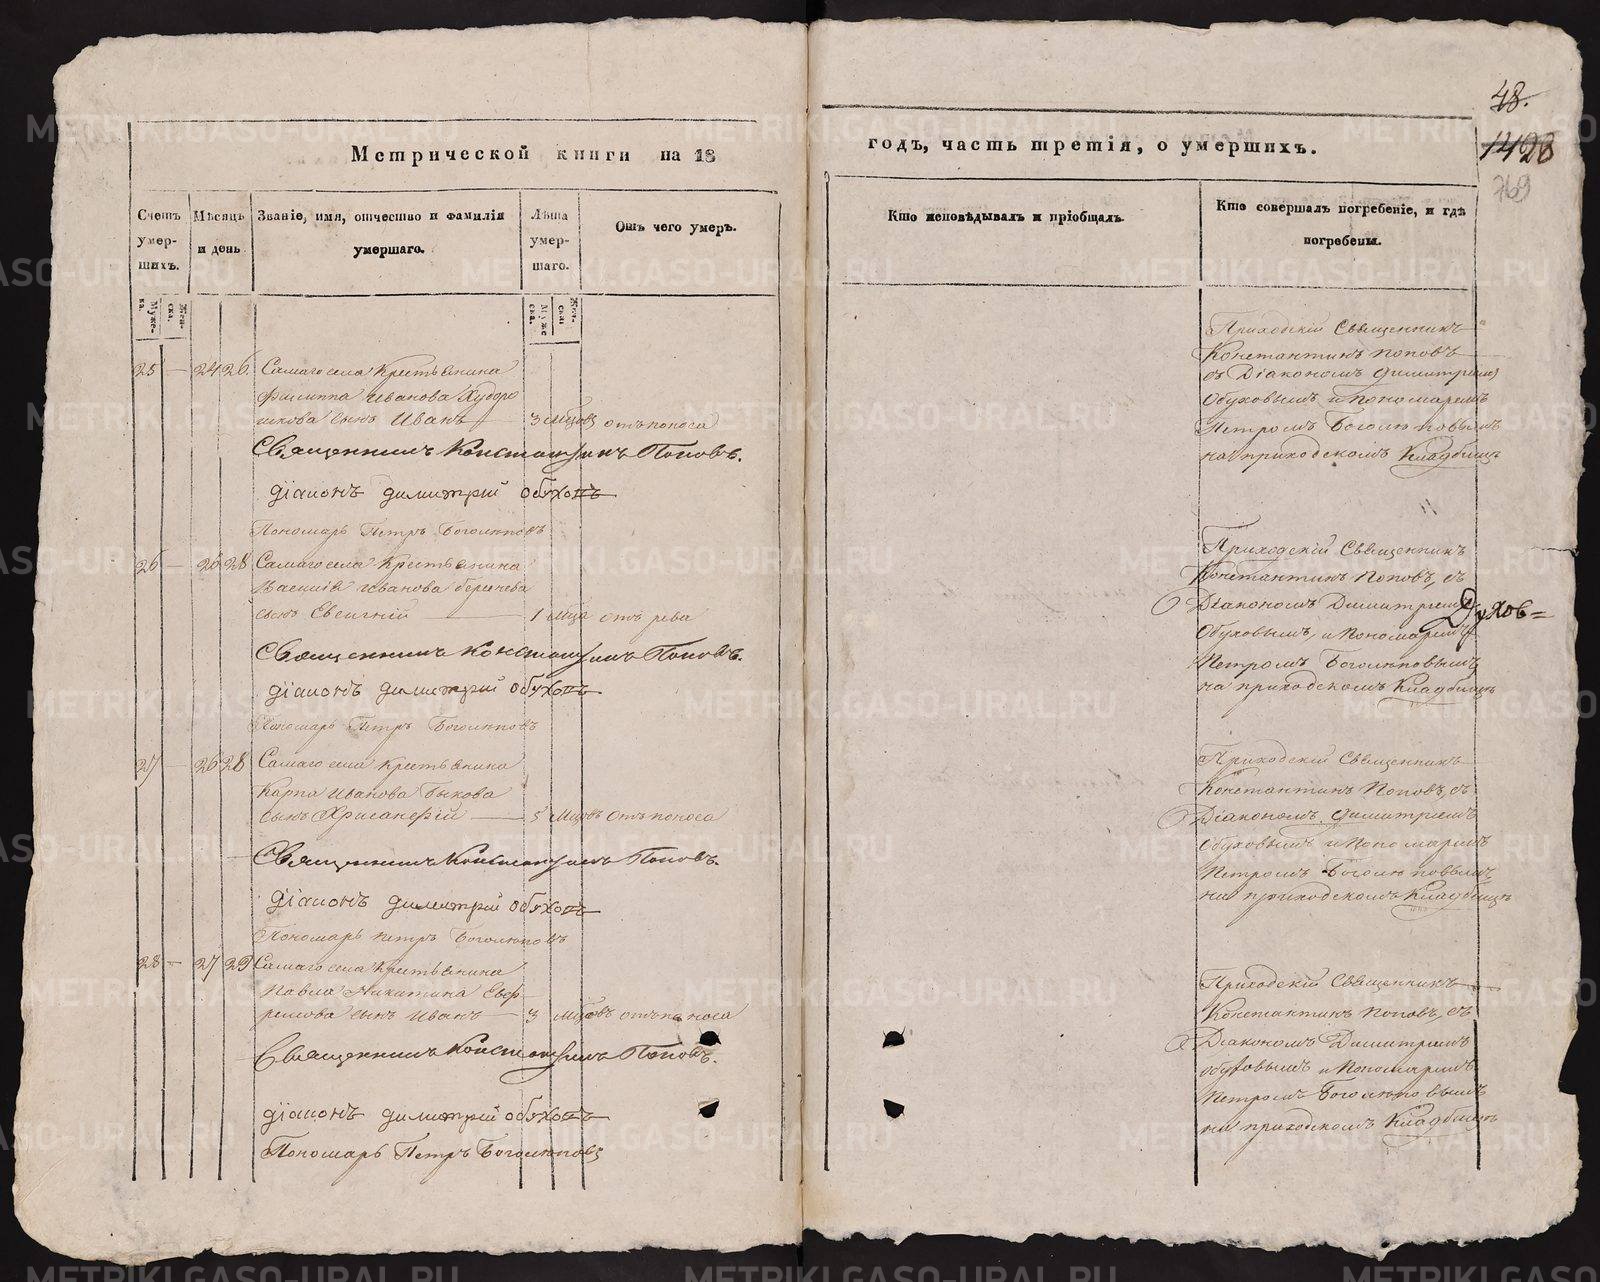 48.
1428
769
Метрической книги на 18
годъ, часть третія, о умершихъ.
Счетъ умер-шихъ.
Мѣсяцъ и день
Званіе, имя, отчество и фамилія умершаго.
Лѣта умер-шаго.
Отъ чего умеръ.
Кто исповѣдывалъ и пріобщалъ.
Кто совершалъ погребеніе, и гдѣ погребены.
Муже-ска.
Жен-ска.
Муже ска.
Жен-ска
25 — 24 26. Самаго села Крестьянина
Филиппа Иванова
сынъ Иванъ — 3 мцовъ отъ поноса
Священникъ Константинъ Поповъ.
Діаконъ Димитрій Обуховъ
Пономарь Петръ Боголюповъ
Приходскій Священникъ
Константинъ Поповъ
съ Діакономъ Димитріемъ
Обуховымъ и Пономаремъ
Петромъ Боголюповымъ
на приходскомъ Кладбищѣ
26 — 26 28 Самаго села Крестьянина
Василія Иванова
сынъ Евгеній — 1 мца отъ рева
Священникъ Константинъ Поповъ.
Діаконъ Димитрій Обуховъ
Пономарь Петръ Боголюповъ
Приходскій Священникъ
Константинъ Поповъ, съ
Діакономъ Димитріемъ
Обуховымъ, и Пономаремъ
Петромъ Боголюповымъ
на приходскомъ Кладбищѣ
Духов=
27 — 26 28 Самаго села Крестьянина
Карпа Иванова Быкова
сынъ Хрисанфій — 5 Мцовъ отъ поноса
Священникъ Константинъ Поповъ.
Діаконъ Димитрій Обуховъ
Пономарь Петръ Боголюповъ
Приходскій Священникъ
Константинъ Поповъ, съ
Діакономъ Димитріемъ
Обуховымъ и Пономаремъ
Петромъ Боголюповымъ
на приходскомъ Кладбищѣ
28 — 27 29 Самаго села Крестьянина
Павла Никитина Еф-
ремова сынъ Иванъ — 3 мцовъ отъ поноса
Священникъ Константинъ Поповъ.
Діаконъ Димитрій Обуховъ
Пономарь Петръ Боголюповъ
Приходскій Священникъ
Константинъ Поповъ, съ
Діакономъ Димитріемъ
Обуховымъ и Пономаремъ
Петромъ Боголюповымъ
на приходскомъ Кладбищѣ
METRIKI.GASO-URAL.RU